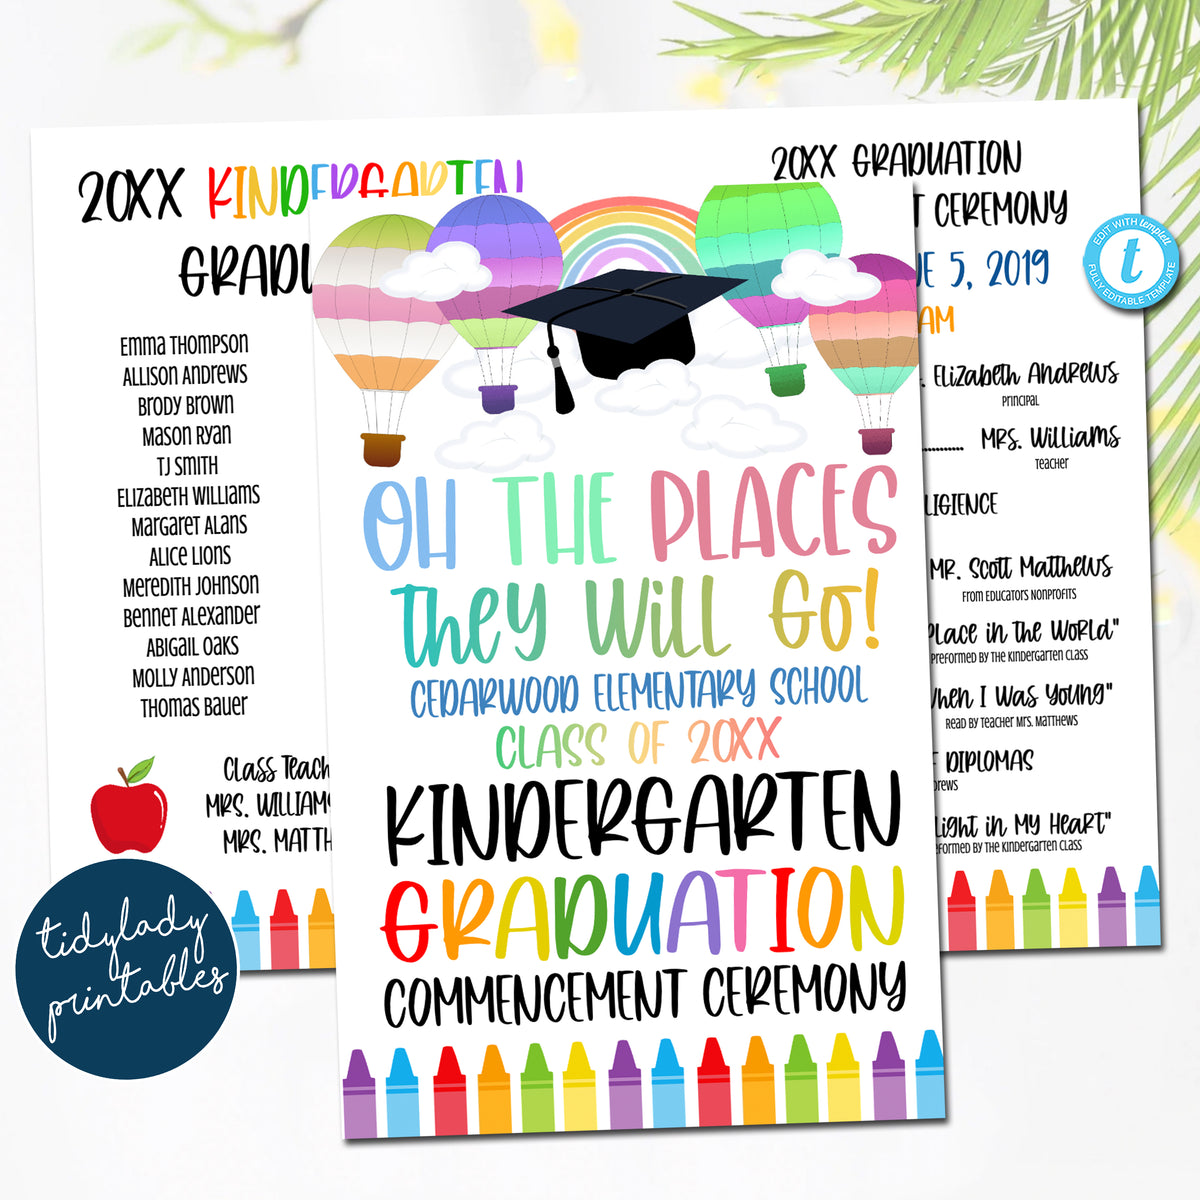 20XX KINDERGARTEN
Emma Thompson
Allison Andrews
Brody Brown
Mason Ryan
TJ Smith
Elizabeth Williams
Margaret Alans
Alice Lions
Meredith Johnson
Bennet Alexander
Abigail Oaks
Molly Anderson
Thomas Bauer
Class
MRS.
MRS.
tidylady
printables
OH THE PLACES
they Will Go!
CEDARWOOD ELEMENTARY SCHOOL
CLASS OF 20XX
KINDERGARTEN
GRADUATION
COMMENCEMENT CEREMONY
20XX GRADUATION
CEREMONY
5, 2019
AM
Elizabeth Andrews
Principal
MRS. Williams
Teacher
MR. Scott Matthews
From Educators Nonprofits
Place in the World"
Preformed by the Kindergarten Class
When I Was Young"
Read by Teacher Mrs. Matthews
OF DIPLOMAS
Light in My Heart"
Preformed by the Kindergarten Class
EDIT WITH templett
t
FULLY EDITABLE TEMPLATE